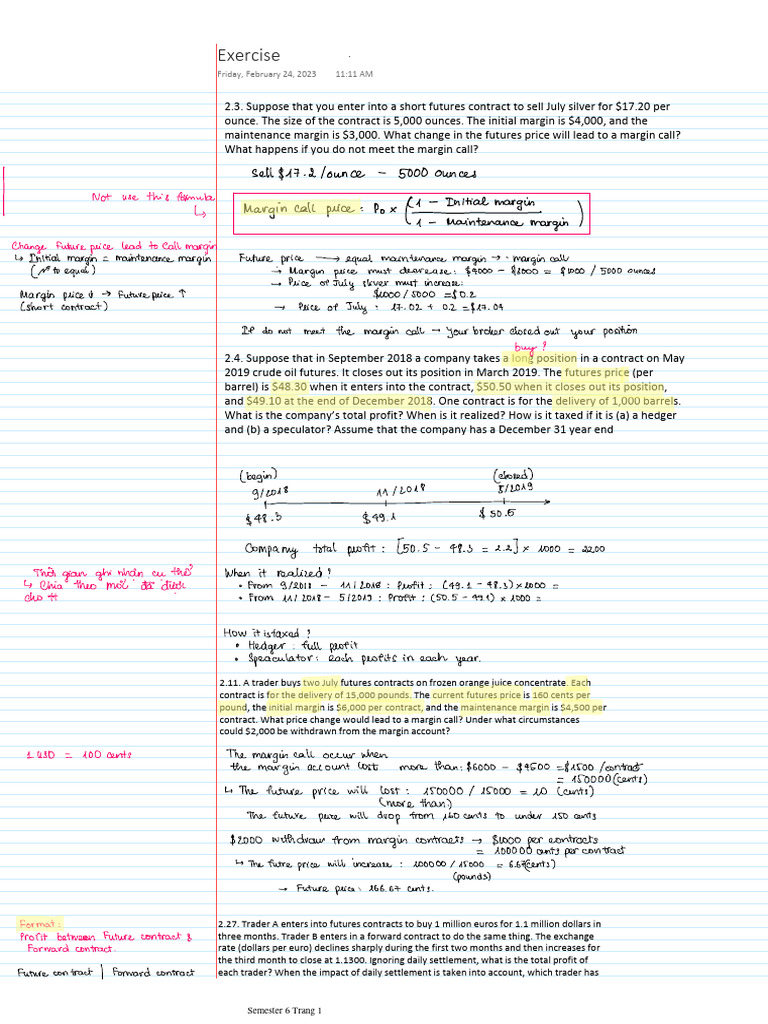 Exercise
Friday, February 24, 2023 11:11 AM
2.3. Suppose that you enter into a short futures contract to sell July silver for $17.20 per
ounce. The size of the contract is 5,000 ounces. The initial margin is $4,000, and the
maintenance margin is $3,000. What change in the futures price will lead to a margin call?
What happens if you do not meet the margin call?
Sell $17.2/ounce - 5000 ounces
Not use this formula
↳
Margin call price: P0 × (1 - Initial margin / 1 - Maintenance margin)
Change Future price lead to Call margin
↳ Initial margin = maintenance margin
to equal)
Margin price ↓ → Future price ↑
(short contract)
Future price → equal maintenance margin → margin call
→ Margin price must decrease: $4000 - $3000 = $1000 / 5000 ounces
→ Price of July silver must increase:
$1000 / 5000 = $0.2
→ Price of July: 17.02 + 0.2 = $17.04
If do not meet the margin call → your broker closed out your position
buy?
2.4. Suppose that in September 2018 a company takes a long position in a contract on May
2019 crude oil futures. It closes out its position in March 2019. The futures price (per
barrel) is $48.30 when it enters into the contract, $50.50 when it closes out its position,
and $49.10 at the end of December 2018. One contract is for the delivery of 1,000 barrels.
What is the company's total profit? When is it realized? How is it taxed if it is (a) a hedger
and (b) a speculator? Assume that the company has a December 31 year end
(begin) (closed)
9/2018 11/2018 5/2019
$48.3 $49.1 $50.5
Company total profit: [50.5 - 48.3 = 2.2] × 1000 = 2200
Thời gian ghi nhận cụ thể?
↳ Chia theo mốc đã
cho
When it realized?
• From 9/2018 - 11/2018: Profit: (49.1 - 48.3) × 1000 =
• From 11/2018 - 5/2019: Profit: (50.5 - 49.1) × 1000 =
How it is taxed?
• Hedger: full profit
• Speaculator: each profits in each year.
2.11. A trader buys two July futures contracts on frozen orange juice concentrate. Each
contract is for the delivery of 15,000 pounds. The current futures price is 160 cents per
pound, the initial margin is $6,000 per contract, and the maintenance margin is $4,500 per
contract. What price change would lead to a margin call? Under what circumstances
could $2,000 be withdrawn from the margin account?
1 USD = 100 cents
The margin call occur when
the margin account lost more than: $6000 - $4500 = $1500 /contract
= 150000 (cents)
↳ The future price will lost: 150000 / 15000 = 10 (cents)
(more than)
The future price will drop from 160 cents to under 150 cents
$2000 withdraw from margin contracts → $1000 per contracts
= 100000 cents per contract
↳ The futre price will increase: 100000 / 15000 = 6.67 (cents)
(pounds)
→ Future price: 166.67 cents.
Format:
Profit between Future contract &
Forward contract.
Future contract | Forward contract
2.27. Trader A enters into futures contracts to buy 1 million euros for 1.1 million dollars in
three months. Trader B enters in a forward contract to do the same thing. The exchange
rate (dollars per euro) declines sharply during the first two months and then increases for
the third month to close at 1.1300. Ignoring daily settlement, what is the total profit of
each trader? When the impact of daily settlement is taken into account, which trader has
Semester 6 Trang 1